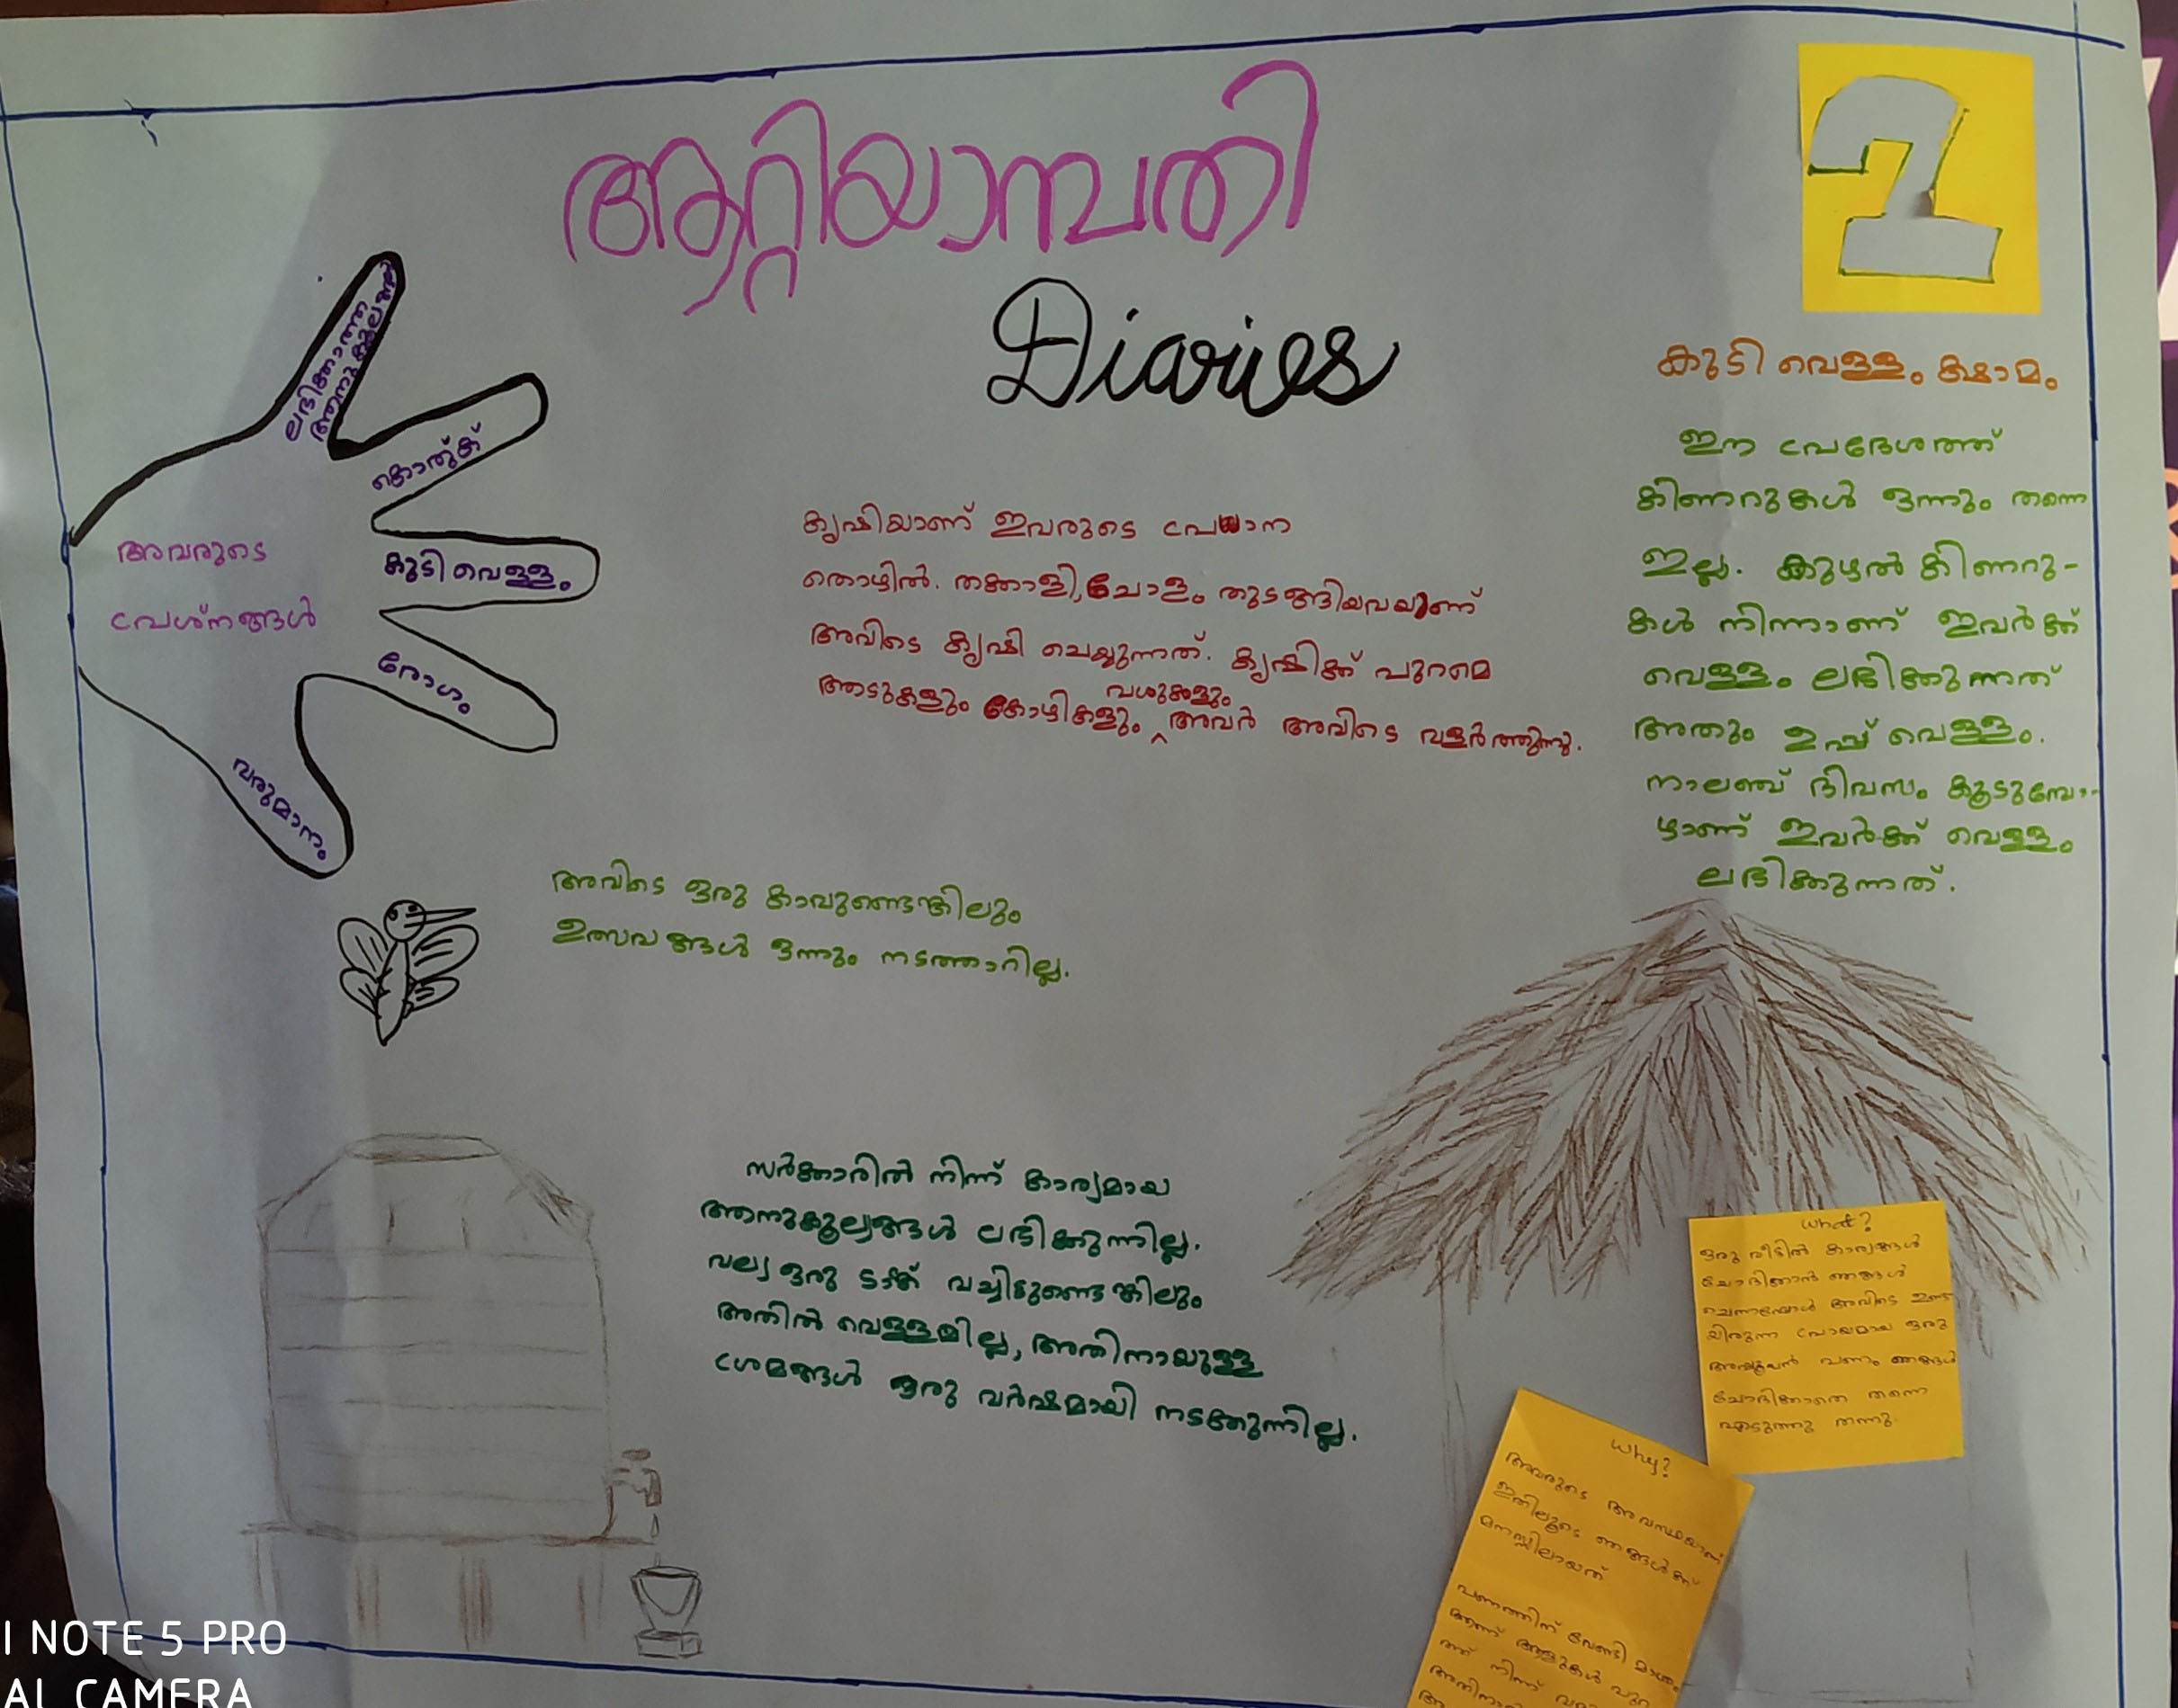 ആറ്റിയാമ്പതി
Diaries
2
അവരുടെ
പ്രശ്നങ്ങൾ
ലഭിക്കാത്ത
കൊതുക്
കുടി വെള്ളം
രോഗം
വരുമാനം
കൃഷിയാണ് ഇവരുടെ പ്രധാന
തൊഴിൽ. തക്കാളി, ചോളം തുടങ്ങിയവയാണ്
അവിടെ കൃഷി ചെയ്യുന്നത്. കൃഷിക്ക് പുറമെ
വശുക്കളും
ആടുകളും കോഴികളും ^ അവർ അവിടെ വളർത്തുന്നു.
കുടി വെള്ളം ക്ഷാമം
ഈ പ്രദേശത്ത്
കിണറുകൾ ഒന്നും തന്നെ
ഇല്ല. കുഴൽ കിണറു-
കൾ നിന്നാണ് ഇവർക്ക്
വെള്ളം ലഭിക്കുന്നത്
അതും ഉപ്പ് വെള്ളം.
നാലഞ്ച് ദിവസം കൂടുമ്പോ-
ഴാണ് ഇവർക്ക് വെള്ളം
ലഭിക്കുന്നത്.
അവിടെ ഒരു കാവുണ്ടെങ്കിലും
ഉത്സവങ്ങൾ ഒന്നും നടത്താറില്ല.
സർക്കാരിൽ നിന്ന് കാര്യമായ
ആനുകൂല്യങ്ങൾ ലഭിക്കുന്നില്ല.
വല്യ ഒരു ടാങ്ക് വച്ചിട്ടുണ്ടെങ്കിലും
അതിൽ വെള്ളമില്ല, അതിനായുള്ള
ശ്രമങ്ങൾ ഒരു വർഷമായി നടക്കുന്നില്ല.
What?
ഒരു വീട്ടിൽ കാര്യങ്ങൾ
ചോദിക്കാൻ ഞങ്ങൾ
ചെന്നപ്പോൾ അവിടെ ഉണ്ടാ
യിരുന്ന പ്രായമായ ഒരു
അപ്പൂപ്പൻ പണം ഞങ്ങൾ
ചോദിക്കാതെ തന്നെ
എടുത്തു തന്നു.
Why?
അവരുടെ അവസ്ഥയാണ്
ഇതിലൂടെ ഞങ്ങൾക്ക്
മനസ്സിലായത്
പണത്തിന് വേണ്ടി മാത്രം
ആണ് ആളുകൾ പുറ
ത്ത് നിന്ന്
I NOTE 5 PRO
AL CAMERA